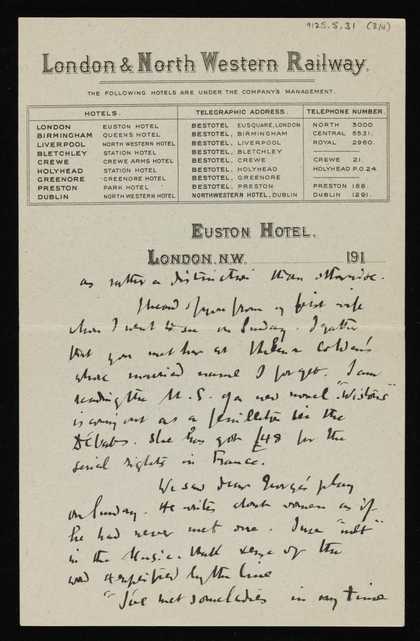 9125.5.31 (3/4)
London & North Western Railway.
THE FOLLOWING HOTELS ARE UNDER THE COMPANY'S MANAGEMENT.
HOTELS. TELEGRAPHIC ADDRESS. TELEPHONE NUMBER.
LONDON EUSTON HOTEL BESTOTEL, EUSQUARE, LONDON NORTH 3000
BIRMINGHAM QUEENS HOTEL BESTOTEL, BIRMINGHAM CENTRAL 5531.
LIVERPOOL NORTH WESTERN HOTEL BESTOTEL, LIVERPOOL ROYAL 2960.
BLETCHLEY STATION HOTEL BESTOTEL, BLETCHLEY
CREWE CREWE ARMS HOTEL BESTOTEL, CREWE CREWE 21.
HOLYHEAD STATION HOTEL BESTOTEL, HOLYHEAD HOLYHEAD P.O.24
GREENORE GREENORE HOTEL BESTOTEL, GREENORE
PRESTON PARK HOTEL BESTOTEL, PRESTON PRESTON 158.
DUBLIN NORTH WESTERN HOTEL NORTHWESTERN HOTEL, DUBLIN DUBLIN 1291.
EUSTON HOTEL.
LONDON, N.W. 191
as rather a distinction than otherwise.
I heard of you from my first wife
whom I went to see on Sunday. I gather
that you met her at
whose married name I forget. I am
reading the M.S. of a new novel.
is coming out as a feuilleton in the
Débats. She has got £48 for the
serial rights in France.
We saw dear George's play
on Sunday. He writes about women as if
he had never met one. I use "met"
in the Music-Hall sense of the
word exemplified by the line
"I've met some ladies in my time